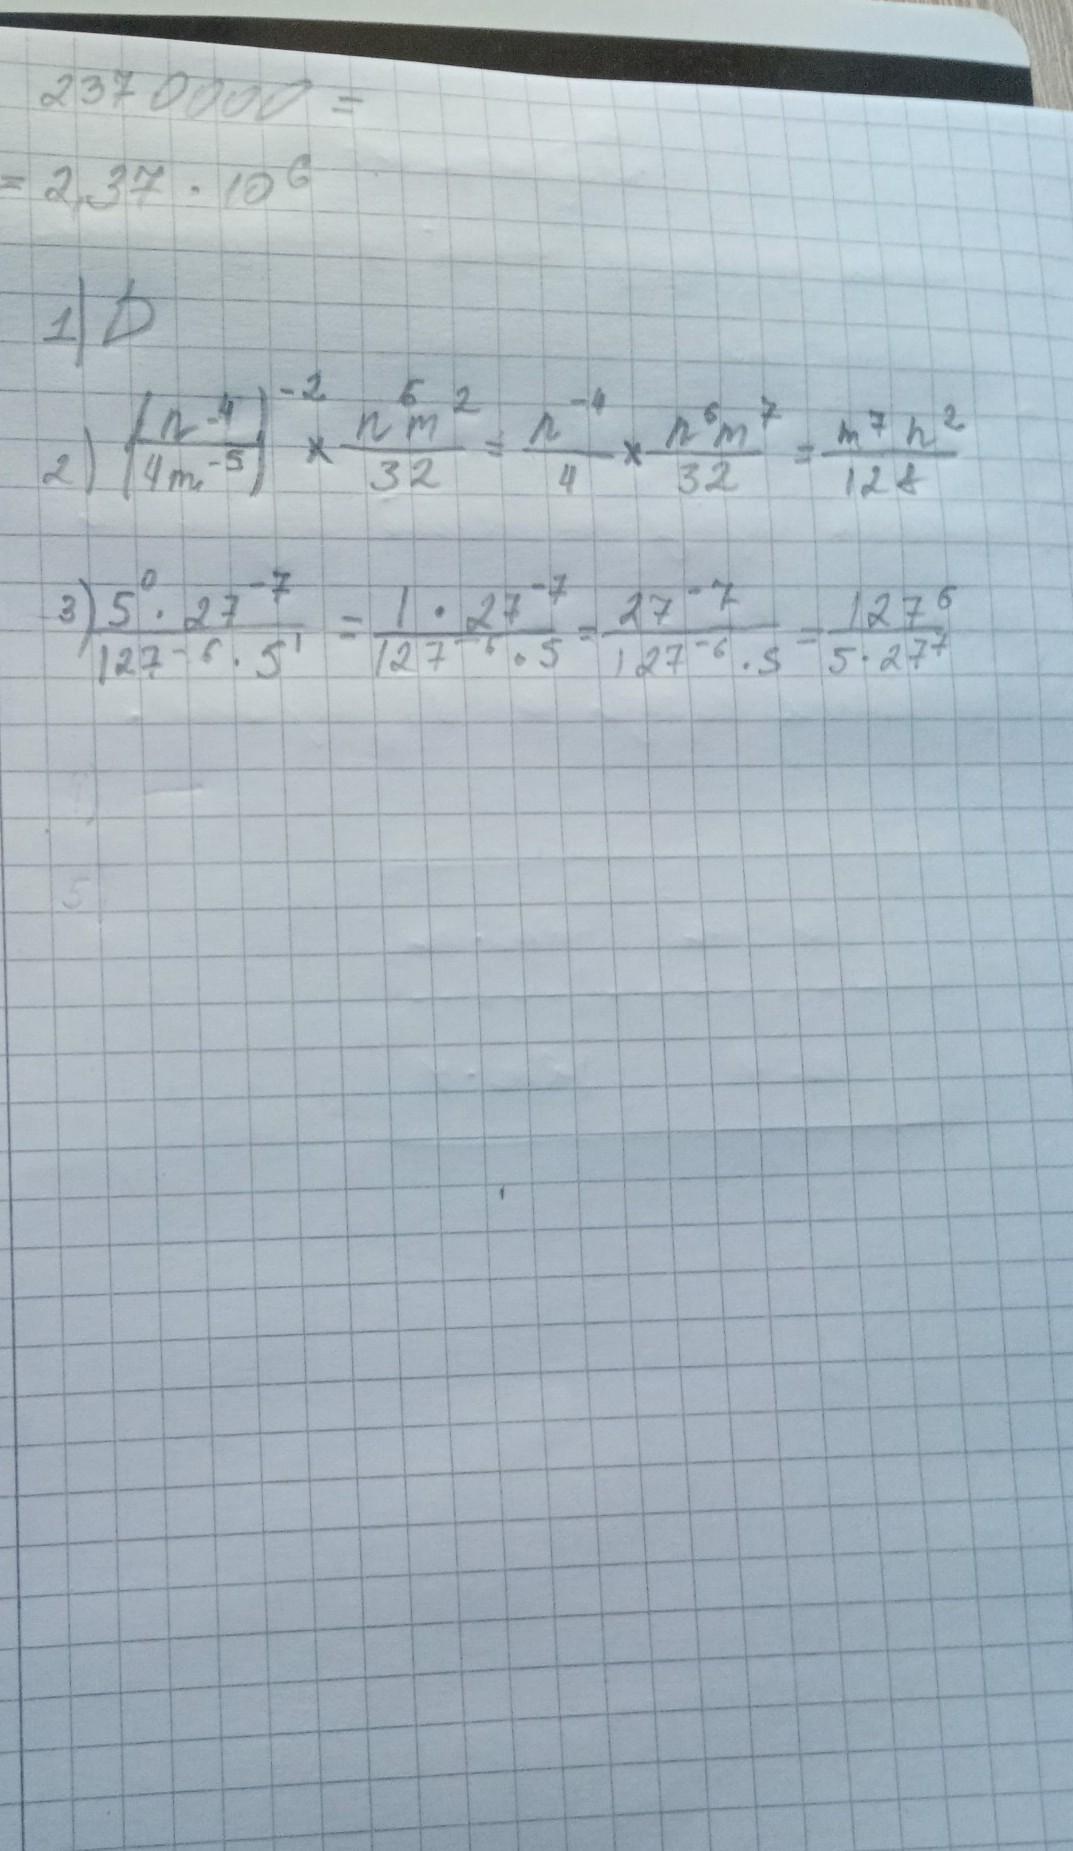 2370000 =
= 2,37 · 10⁶
1) D
2) (n⁻⁴/4m⁻⁵)⁻² × n⁶m²/32 = n⁻⁴/4 × n⁶m⁷/32 = m⁷n²/128
3) 5⁰ · 27⁻⁷/127⁻⁶ · 5¹ = 1 · 27⁻⁷/127⁻⁶ · 5 = 27⁻⁷/127⁻⁶ · 5 = 127⁶/5 · 27⁷
5